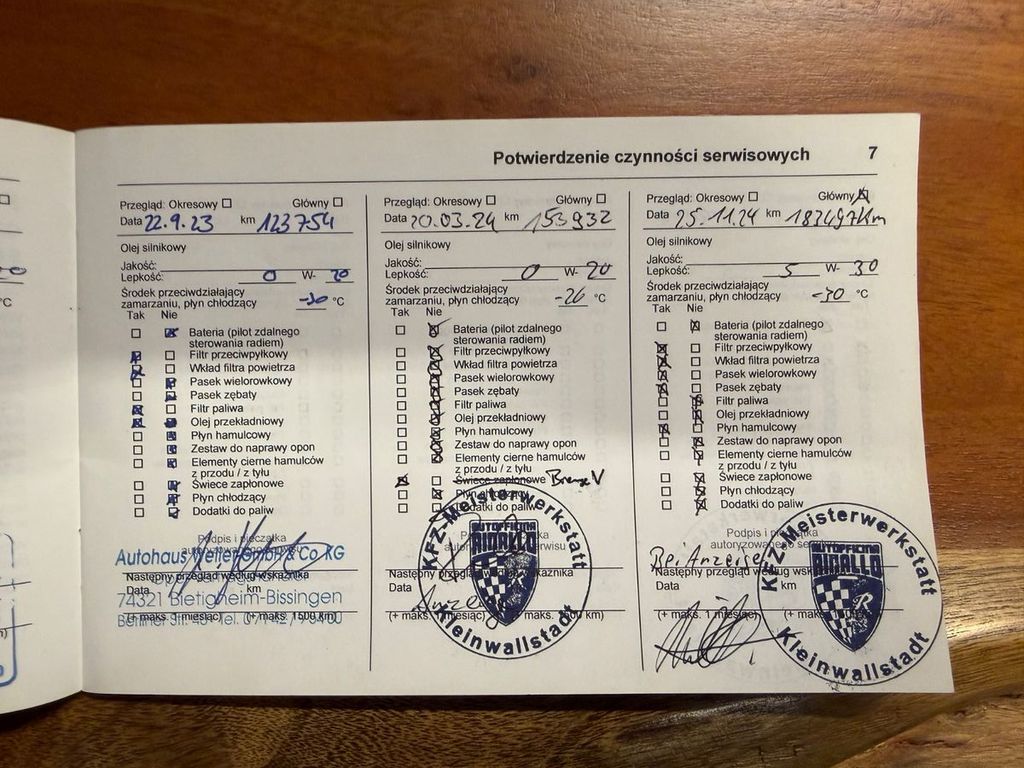 Potwierdzenie czynności serwisowych 7
Przegląd: Okresowy Główny
Data 22.9.23 km 123754
Olej silnikowy
Jakość:
Lepkość: 0 W- 20
Środek przeciwdziałający
zamarzaniu, płyn chłodzący -30 °C
Tak Nie
Bateria (pilot zdalnego
sterowania radiem)
Filtr przeciwpyłkowy
Wkład filtra powietrza
Pasek wielorowkowy
Pasek zębaty
Filtr paliwa
Olej przekładniowy
Płyn hamulcowy
Zestaw do naprawy opon
Elementy cierne hamulców
z przodu / z tyłu
Świece zapłonowe
Płyn chłodzący
Dodatki do paliw
Podpis i pieczątka
Autohaus Co KG
Następny przegląd według wskaźnika
Data km
74321 Bietigheim-Bissingen
(+ maks. 1 miesiąc) (+ maks. 1500 km)
Przegląd: Okresowy Główny
Data 20.03.24 km 153932
Olej silnikowy
Jakość:
Lepkość: 0 W- 20
Środek przeciwdziałający
zamarzaniu, płyn chłodzący -26 °C
Tak Nie
Bateria (pilot zdalnego
sterowania radiem)
Filtr przeciwpyłkowy
Wkład filtra powietrza
Pasek wielorowkowy
Pasek zębaty
Filtr paliwa
Olej przekładniowy
Płyn hamulcowy
Zestaw do naprawy opon
Elementy cierne hamulców
z przodu / z tyłu
Świece zapłonowe
Płyn chłodzący
Dodatki do paliw
KFZ-Meisterwerkstatt
AUTOFFICINA
RIGALLO
Kleinwallstadt
Następny przegląd według wskaźnika
Data
(+ maks. 1 miesiąc) (+ maks. 1500 km)
Przegląd: Okresowy Główny
Data 25.11.24 km 183497km
Olej silnikowy
Jakość:
Lepkość: 5 W- 30
Środek przeciwdziałający
zamarzaniu, płyn chłodzący -30 °C
Tak Nie
Bateria (pilot zdalnego
sterowania radiem)
Filtr przeciwpyłkowy
Wkład filtra powietrza
Pasek wielorowkowy
Pasek zębaty
Filtr paliwa
Olej przekładniowy
Płyn hamulcowy
Zestaw do naprawy opon
Elementy cierne hamulców
z przodu / z tyłu
Świece zapłonowe
Płyn chłodzący
Dodatki do paliw
Podpis i pieczątka
Bei Anzeige
Następny przegląd według
Data km
(+ maks. 1 miesiąc) (+ maks.
KFZ-Meisterwerkstatt
AUTOFFICINA
RIGALLO
Kleinwallstadt